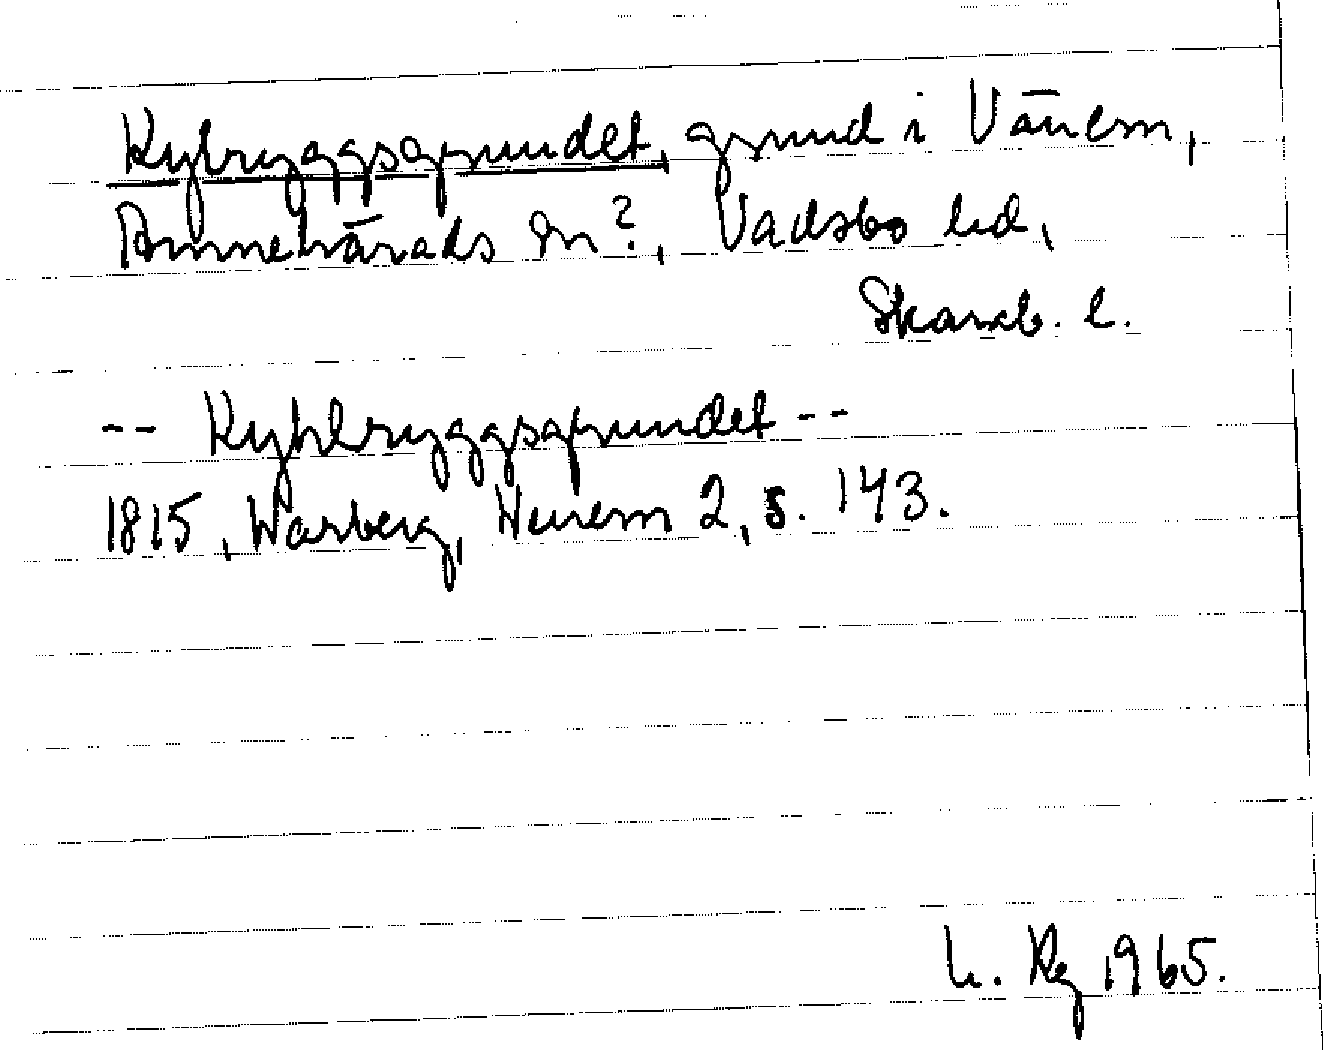 Kybryggsgrundet, grund i Vänern,
Amnehärads sn?, Vadsbo hd,
Skarab. l.
-- Kyhlryggsgrundet --
1815, Warberg, Wenern 2, s. 143.
L. Rg 1965.